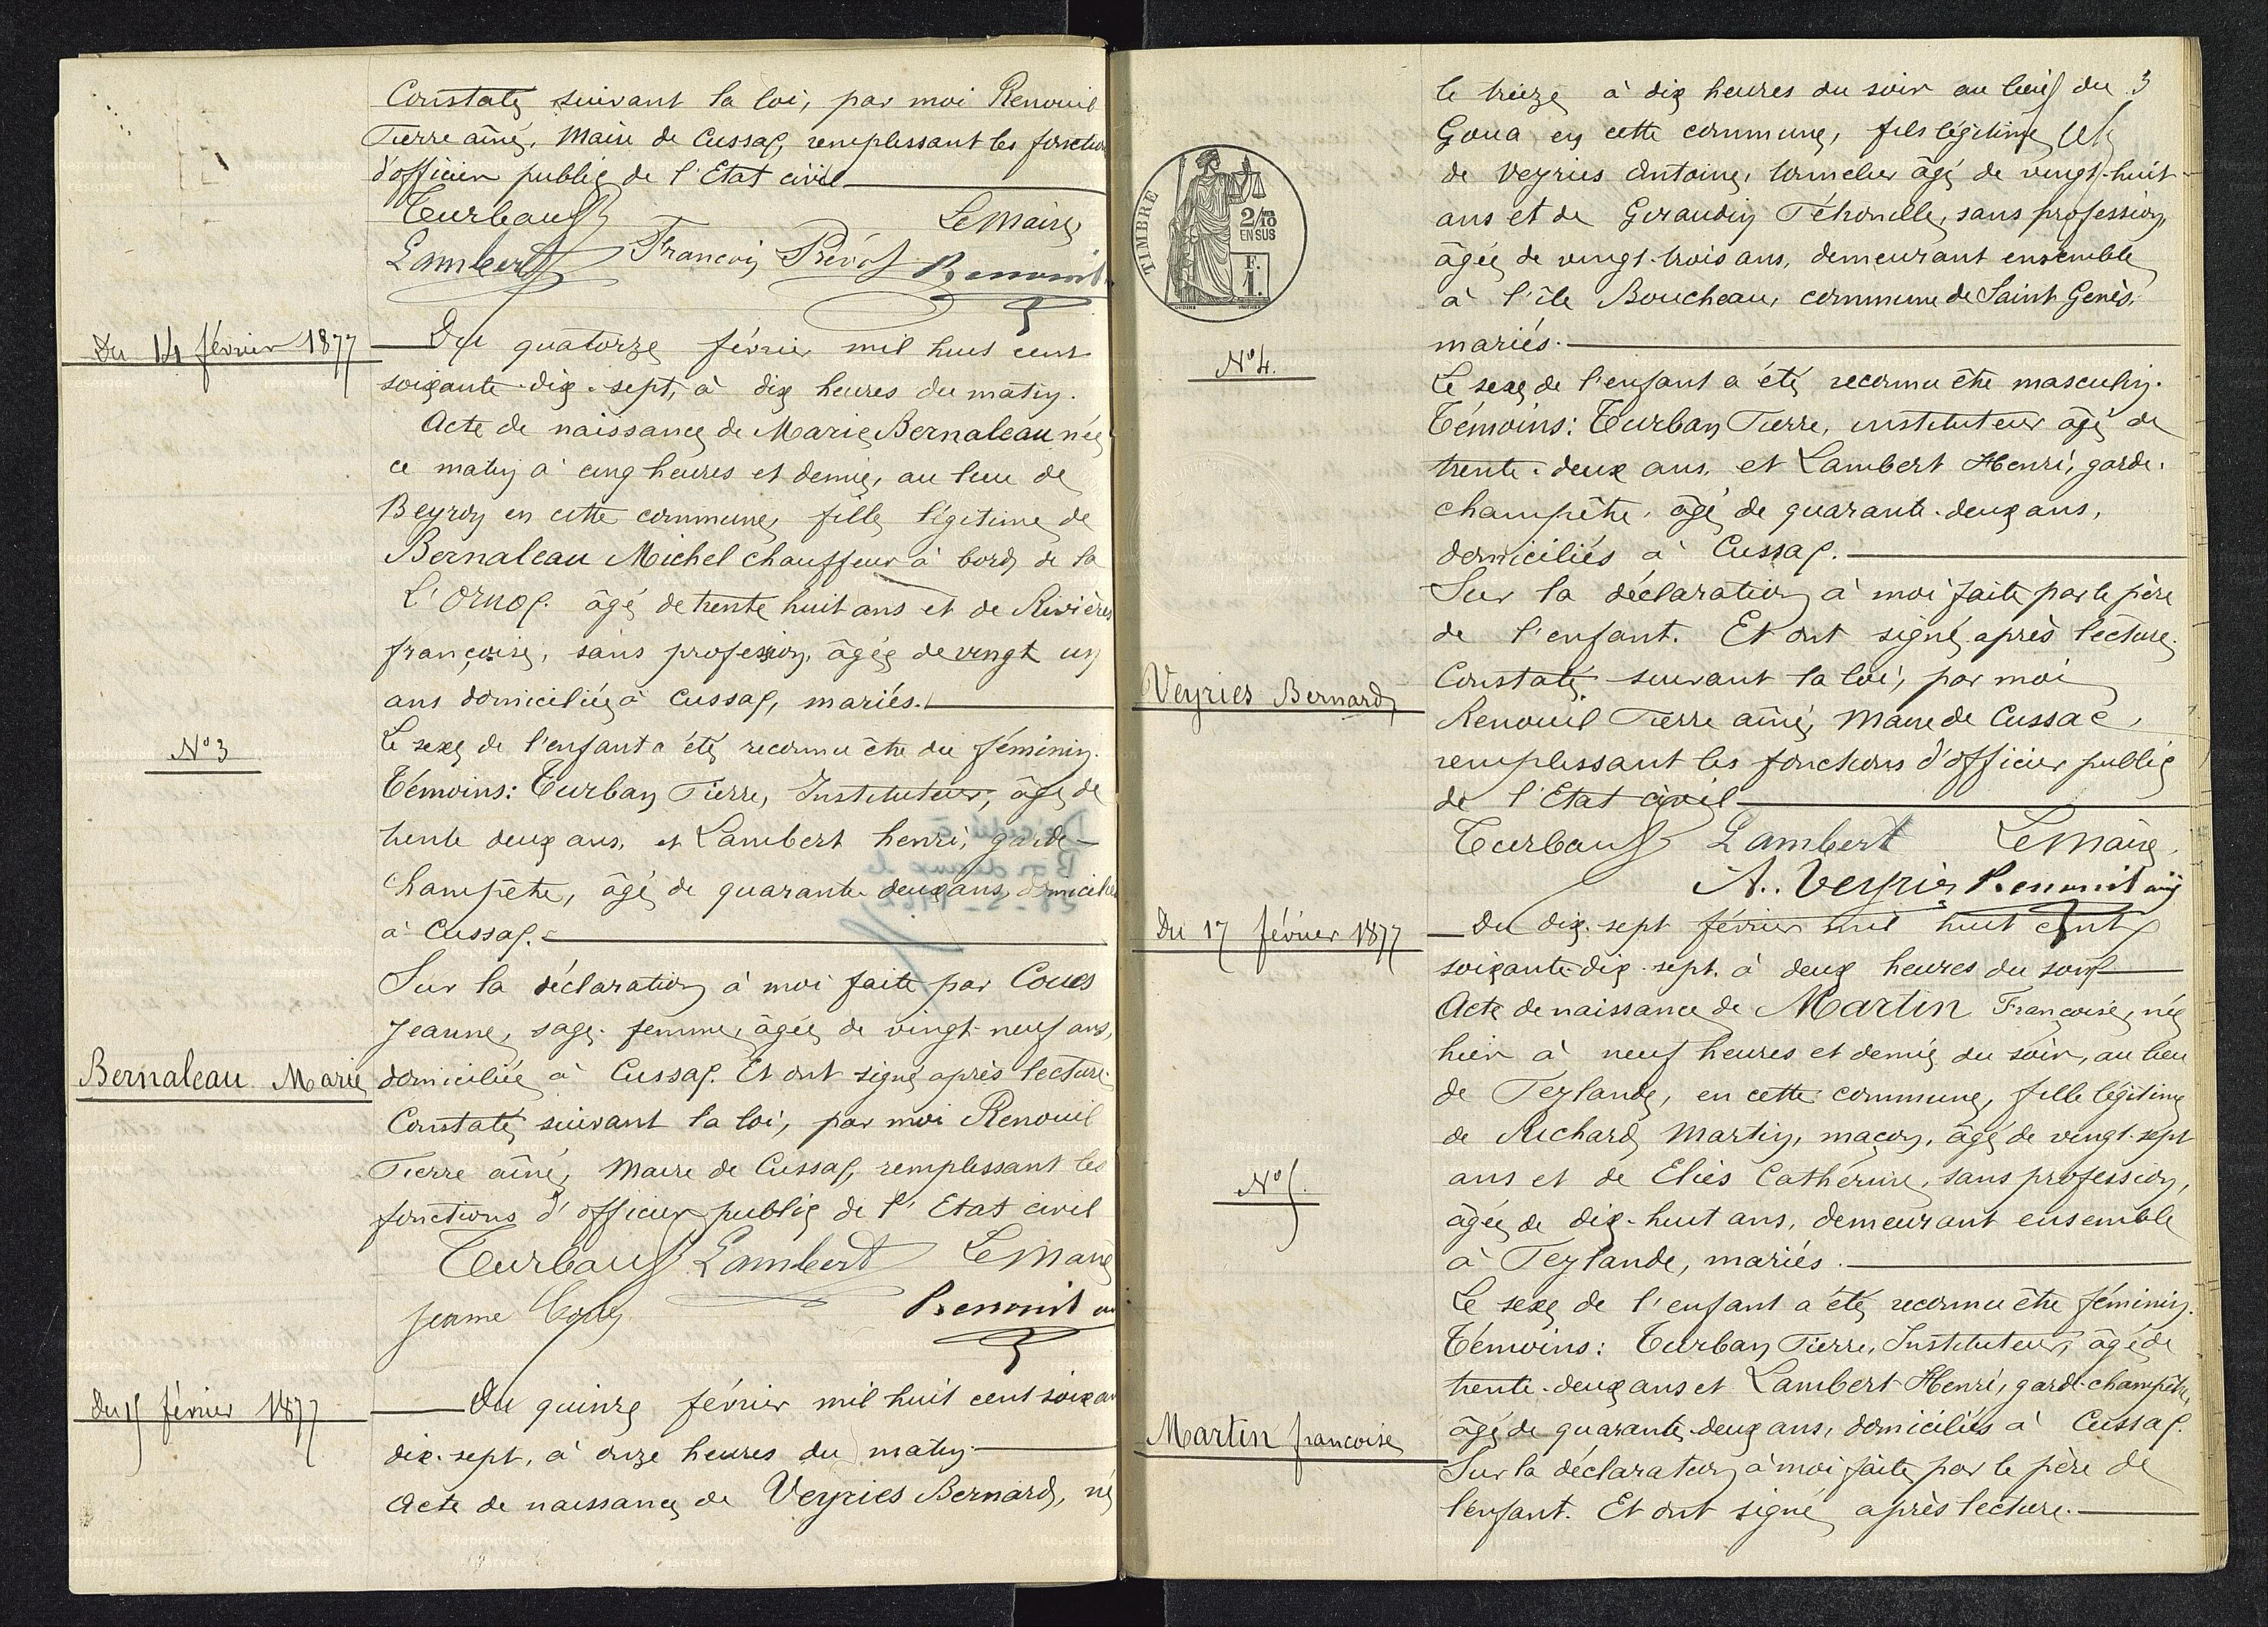 Constaté suivant la loi, par moi Renouil
Pierre aîné, Maire de Cussac, remplissant les fonction
d'officier public de l'Etat civil
Turban Le Maire
Lambert François Prévot Renouil
Du 14 février 1877
Du quatorze février mil huit cent
soixante-dix-sept, à dix heures du matin.
Acte de naissance de Marie Bernaleau née
ce matin à cinq heures et demie, au lieu de
Beyron en cette commune, fille légitime de
Bernaleau Michel chauffeur à bord de la
L'Ornoc. âgé de trente huit ans et de Rivières
françoise, sans profession, âgée de vingt un
ans domiciliés à Cussac, mariés.
N° 3
Le sexe de l'enfant a été reconnu être du féminin.
Témoins: Turban Pierre, Instituteur, âgé de
trente deux ans, et Lambert henri, garde-
champêtre, âgé de quarante-deux ans, domiciliés
à Cussac.
Sur la déclaration à moi faite par Coues
Jeanne, sage-femme, âgée de vingt-neuf ans,
Bernaleau Marie
domiciliée à Cussac. Et ont signé après lecture.
Constaté suivant la loi, par moi Renouil
Pierre aîné, Maire de Cussac, remplissant les
fonctions d'officier public de l'Etat civil
Turban Lambert Le Maire
Jeanne Renouil
Du 15 février 1877
Du quinze février mil huit cent soixan
dix-sept, à onze heures du matin.
Acte de naissance de Veyries Bernard, né
TIMBRE
2/10 EN SUS
F. 1.
le treize à dix heures du soir au lieu du
Goua en cette commune, fils légitime
de Veyries Antoine, tonnelier âgé de vingt-huit
ans et de Geraudin Pétronille, sans profession,
âgée de vingt-trois ans, demeurant ensemble
à l'île Boucheau, commune de Saint Genès.
mariés.
N° 4.
Le sexe de l'enfant a été reconnu être masculin.
Témoins: Turban Pierre, instituteur âgé de
trente-deux ans, et Lambert Henri, garde-
champêtre, âgé de quarante-deux ans,
domiciliés à Cussac.
Sur la déclaration à moi faite par le père
de l'enfant. Et ont signé après lecture.
Veyries Bernard
Constaté suivant la loi, par moi
Renouil Pierre aîné, Maire de Cussac,
remplissant les fonctions d'officier public
de l'Etat civil
Turban Lambert Le Maire,
A. Veyries Renouil aîné
Du 17 février 1877
Du dix-sept février mil huit cent
soixante-dix-sept, à deux heures du soir
Acte de naissance de Martin Françoise, née
hier à neuf heures et demie du soir, au lieu
de Teylande, en cette commune, fille légitime
de Richard Martin, maçon, âgé de vingt-sept
N° 5.
ans et de Eliès Catherine, sans profession,
âgée de dix-huit ans, demeurant ensemble
à Teylande, mariés.
Le sexe de l'enfant a été reconnu être féminin.
Témoins: Turban Pierre, Instituteur, âgé de
trente-deux ans et Lambert Henri, garde-champêtre,
âgé de quarante-deux ans, domiciliés à Cussac.
Martin francoise
Sur la déclaration à moi faite par le père de
l'enfant. Et ont signé après lecture.